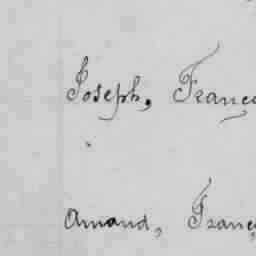 Joseph, Franço
Amand, Franç